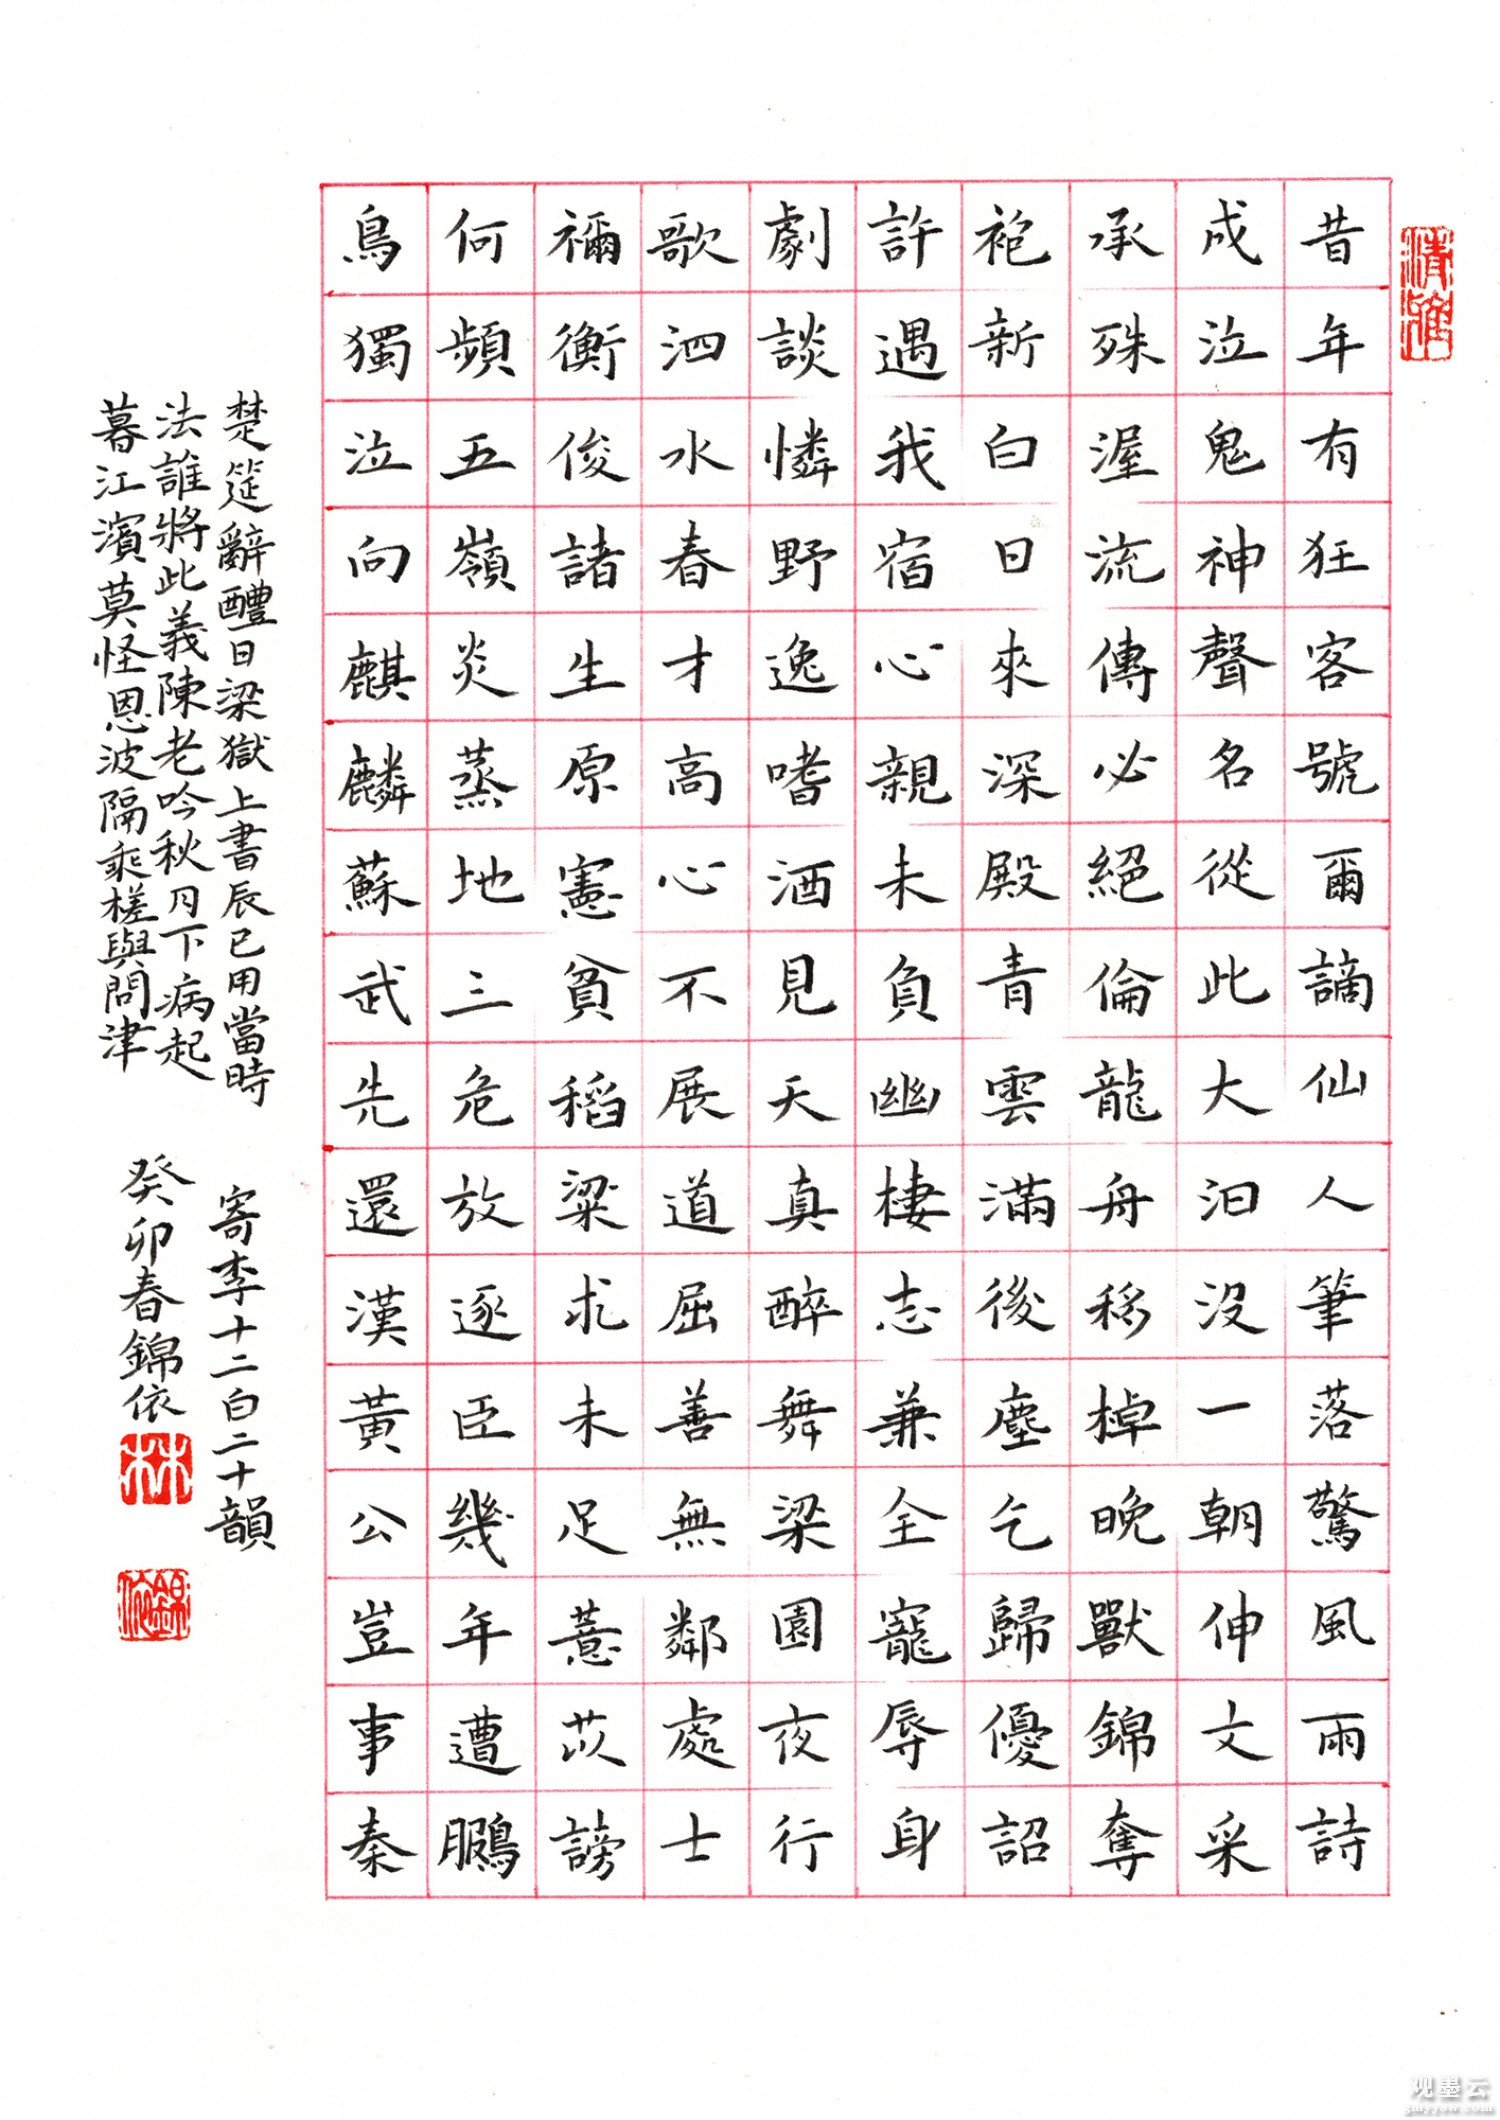 昔年有狂客號爾謫仙人筆落驚風雨詩
成泣鬼神聲名從此大汩沒一朝伸文采
承殊渥流傳必絕倫龍舟移棹晚獸錦奪
袍新白日來深殿青雲滿後塵乞歸優詔
許遇我宿心親未負幽棲志兼全寵辱身
劇談憐野逸嗜酒見天真醉舞梁園夜行
歌泗水春才高心不展道屈善無鄰處士
禰衡俊諸生原憲貧稻粱求未足薏苡謗
何頻五嶺炎蒸地三危放逐臣幾年遭鵩
鳥獨泣向麒麟蘇武先還漢黃公豈事秦
楚筵辭醴日梁獄上書辰已用當時
法誰將此義陳老吟秋月下病起
暮江濱莫怪恩波隔乘槎與問津
寄李十二白二十韻
癸卯春錦依
清雅
林
錦依
观墨云